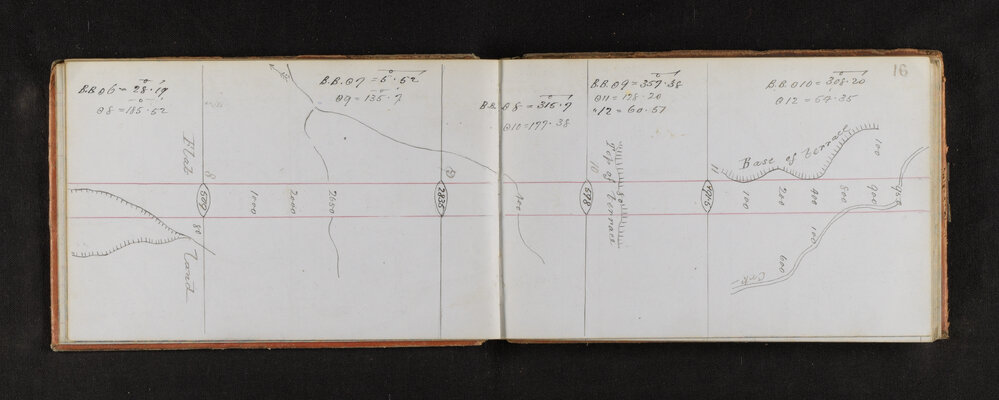 16
B.B.@6 = 28°.19'
@8 = 185.52
B.B.@7 = 5°.52'
@9 = 135°.7'
B.B.@8 = 315°.7'
@10 = 177.38
B.B.@9 = 357°.38'
@11 = 128.20
"12 = 60.57
B.B.@10 = 308°.20'
@12 = 57.35
Flat
Land
8
80
1000
2000
2650
9
2835
100
10
698
50
Top of terrace
11
Base of terrace
100
100
200
400
800
900
950
100
600
Crk